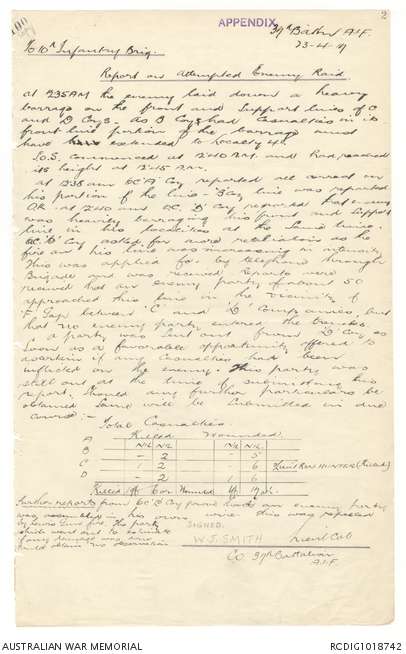 APPENDIX
2
39th Battn A.I.F.
23-4-17
To 10th Infantry Brig.
Report on Attempted Enemy Raid.
at 2.35AM the enemy laid down a heavy
barrage on the front and Support lines of C
and D Coys. As B Coys had Casualties in its
front line portion of the barrage must
have extended to locality
S.O.S. commenced at 2-40 am. and had reached
its height at 2-45 am.
at 2.38 am OC "A" Coy reported all correct on
his portion of the line - B Coy line was reported
OK. at 2-40 am OC. "D" Coy reported that enemy
was heavily barraging his front and Support
line in two localities at the same time.
OC. "C" Coy asked for more retaliation as
fire on his line was increasing in intensity.
This was applied for by telephone through
Brigade and was received. Reports were
received that an enemy party of about 50
approached this line in the vicinity of
"F" Gap between "C" and "D" Companies, but
that no enemy party entered the trenches.
a party was sent out from "D" Coy as
soon as a favorable opportunity offered to
ascertain if any Casualties had been
inflicted on the enemy. This party was
still out at the time of submitting this
report, should any further particulars be
obtained same will be submitted in due
course :-
Total Casualties.
Killed Wounded.
A
B - 2 - 5
C 1 2 - 6 Lieut HUNTER (Killed)
D - 2 1 6
Killed Wounded
Further reports from OC "C" Coy an enemy party
was assembling in his own wire this was dispersed
by Lewis Gun fire. The party
could obtain no observation
SIGNED.
W. J. SMITH Lieut Col
Co. 39th Battalion
A.I.F.
AUSTRALIAN WAR MEMORIAL
RCDIG1018742